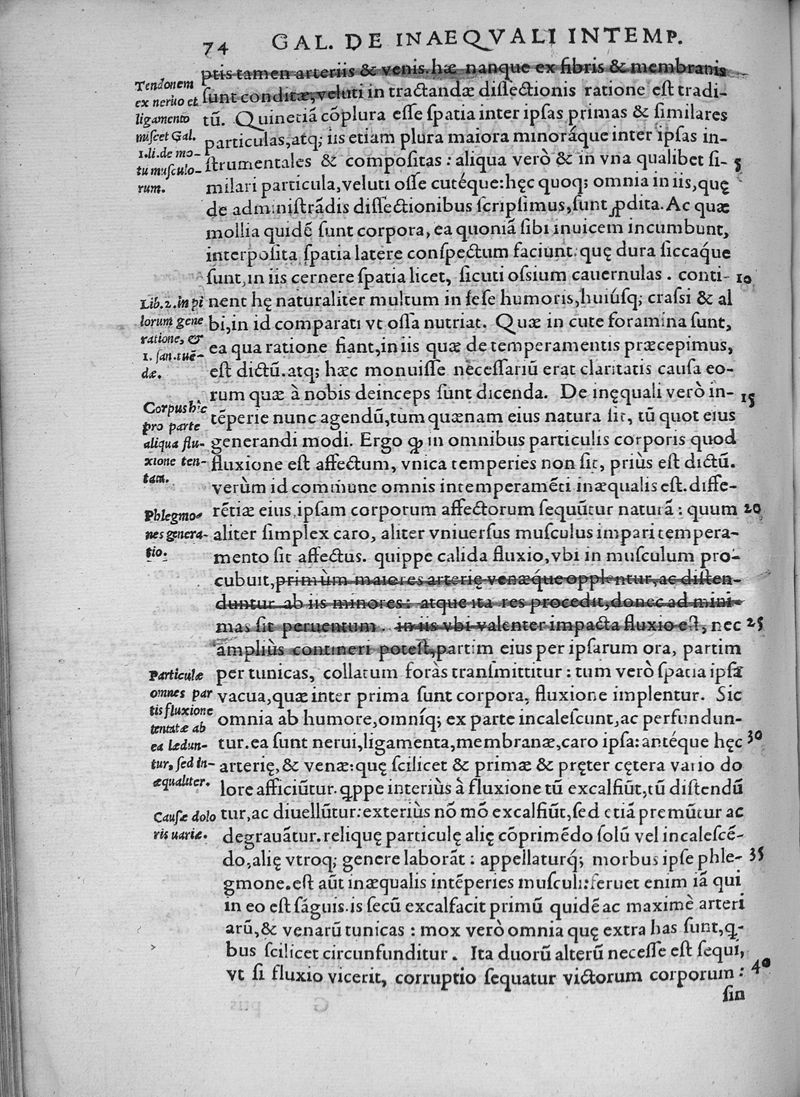 74 GAL. DE INAEQVALI INTEMP.
ptis tamen arteriis & venis. hæ nanque ex fibris & membranis
ſunt conditæ, veluti in tractandæ diſſectionis ratione eſt tradi-
tũ. Quinetiã cõplura eſſe ſpatia inter ipſas primas & ſimilares
particulas, atq; iis etiam plura maiora minoráque inter ipſas in-
ſtrumentales & compoſitas: aliqua verò & in vna qualibet ſi- 5
milari particula, veluti oſſe cutéque: hęc quoq; omnia in iis, quę
de adminiſtrãdis diſſectionibus ſcripſimus, ſunt ꝓdita. Ac quæ
mollia quidẽ ſunt corpora, ea quoniã ſibi inuicem incumbunt,
interpoſita ſpatia latere conſpectum faciunt. quę dura ſiccaque
ſunt, in iis cernere ſpatia licet, ſicuti oſsium cauernulas. conti- 10
nent hę naturaliter multum in ſeſe humoris, huiúſq; craſsi & al
bi, in id comparati vt oſſa nutriat. Quæ in cute foramina ſunt,
ea qua ratione fiant, in iis quæ de temperamentis præcepimus,
eſt dictũ. atq; hæc monuiſſe neceſſariũ erat claritatis cauſa eo-
rum quæ à nobis deinceps ſunt dicenda. De inęquali verò in- 15
tẽperie nunc agendũ, tum quænam eius natura ſit, tũ quot eius
generandi modi. Ergo ꝙ in omnibus particulis corporis quod
fluxione eſt affectum, vnica temperies non ſit, priùs eſt dictũ.
verùm id commune omnis intemperamẽti inæqualis eſt. diffe-
rẽtiæ eius ipſam corporum affectorum ſequũtur naturã: quum 20
aliter ſimplex caro, aliter vniuerſus muſculus impari tempera-
mento ſit affectus. quippe calida fluxio, vbi in muſculum pro-
cubuit, primùm maiores arterię venæque opplentur, ac diſten-
duntur ab iis minores: atque ita res procedit, donec ad mini-
mas ſit peruentum. in iis vbi valenter impacta fluxio eſt, nec 25
ampliùs contineri poteſt, partim eius per ipſarum ora, partim
per tunicas, collatum foràs tranſmittitur: tum verò ſpatia ipſa
vacua, quæ inter prima ſunt corpora, fluxione implentur. Sic
omnia ab humore, omníq; ex parte incaleſcunt, ac perfundun-
tur. ea ſunt nerui, ligamenta, membranæ, caro ipſa: antéque hęc 30
arterię, & venæ: quę ſcilicet & primæ & pręter cętera vario do
lore afficiũtur. qppe interiùs à fluxione tũ excalfiũt, tũ diſtendũ
tur, ac diuellũtur: exteriùs nõ mõ excalfiũt, ſed etiã premũtur ac
degrauãtur. reliquę particulę alię cõprimẽdo ſolũ vel incaleſcẽ-
do, alię vtroq; genere laborãt: appellaturq; morbus ipſe phle- 35
gmone. eſt aũt inæqualis intẽperies muſculi: feruet enim iã qui
in eo eſt ſãguis. is ſecũ excalfacit primũ quidẽ ac maximè arteri
arũ, & venarũ tunicas: mox verò omnia quę extra has ſunt, q-
bus ſcilicet circunfunditur. Ita duorũ alterũ neceſſe eſt ſequi,
vt ſi fluxio vicerit, corruptio ſequatur victorum corporum: 40
ſin
Tendonem
ex neruo et
ligamento
miſcet Gal.
1. li. de mo-
tu muſculo-
rum.
Lib. 2. in pi
lorum gene
ratione, &
1. ſan. tuẽ-
dæ.
Corpus hic
pro parte
aliqua flu-
xione ten-
tata.
Phlegmo-
nes genera-
tio.
Particulæ
omnes par
tis fluxione
tentatæ ab
ea lædun-
tur, ſed in-
æqualiter.
Cauſæ dolo
ris uariæ.